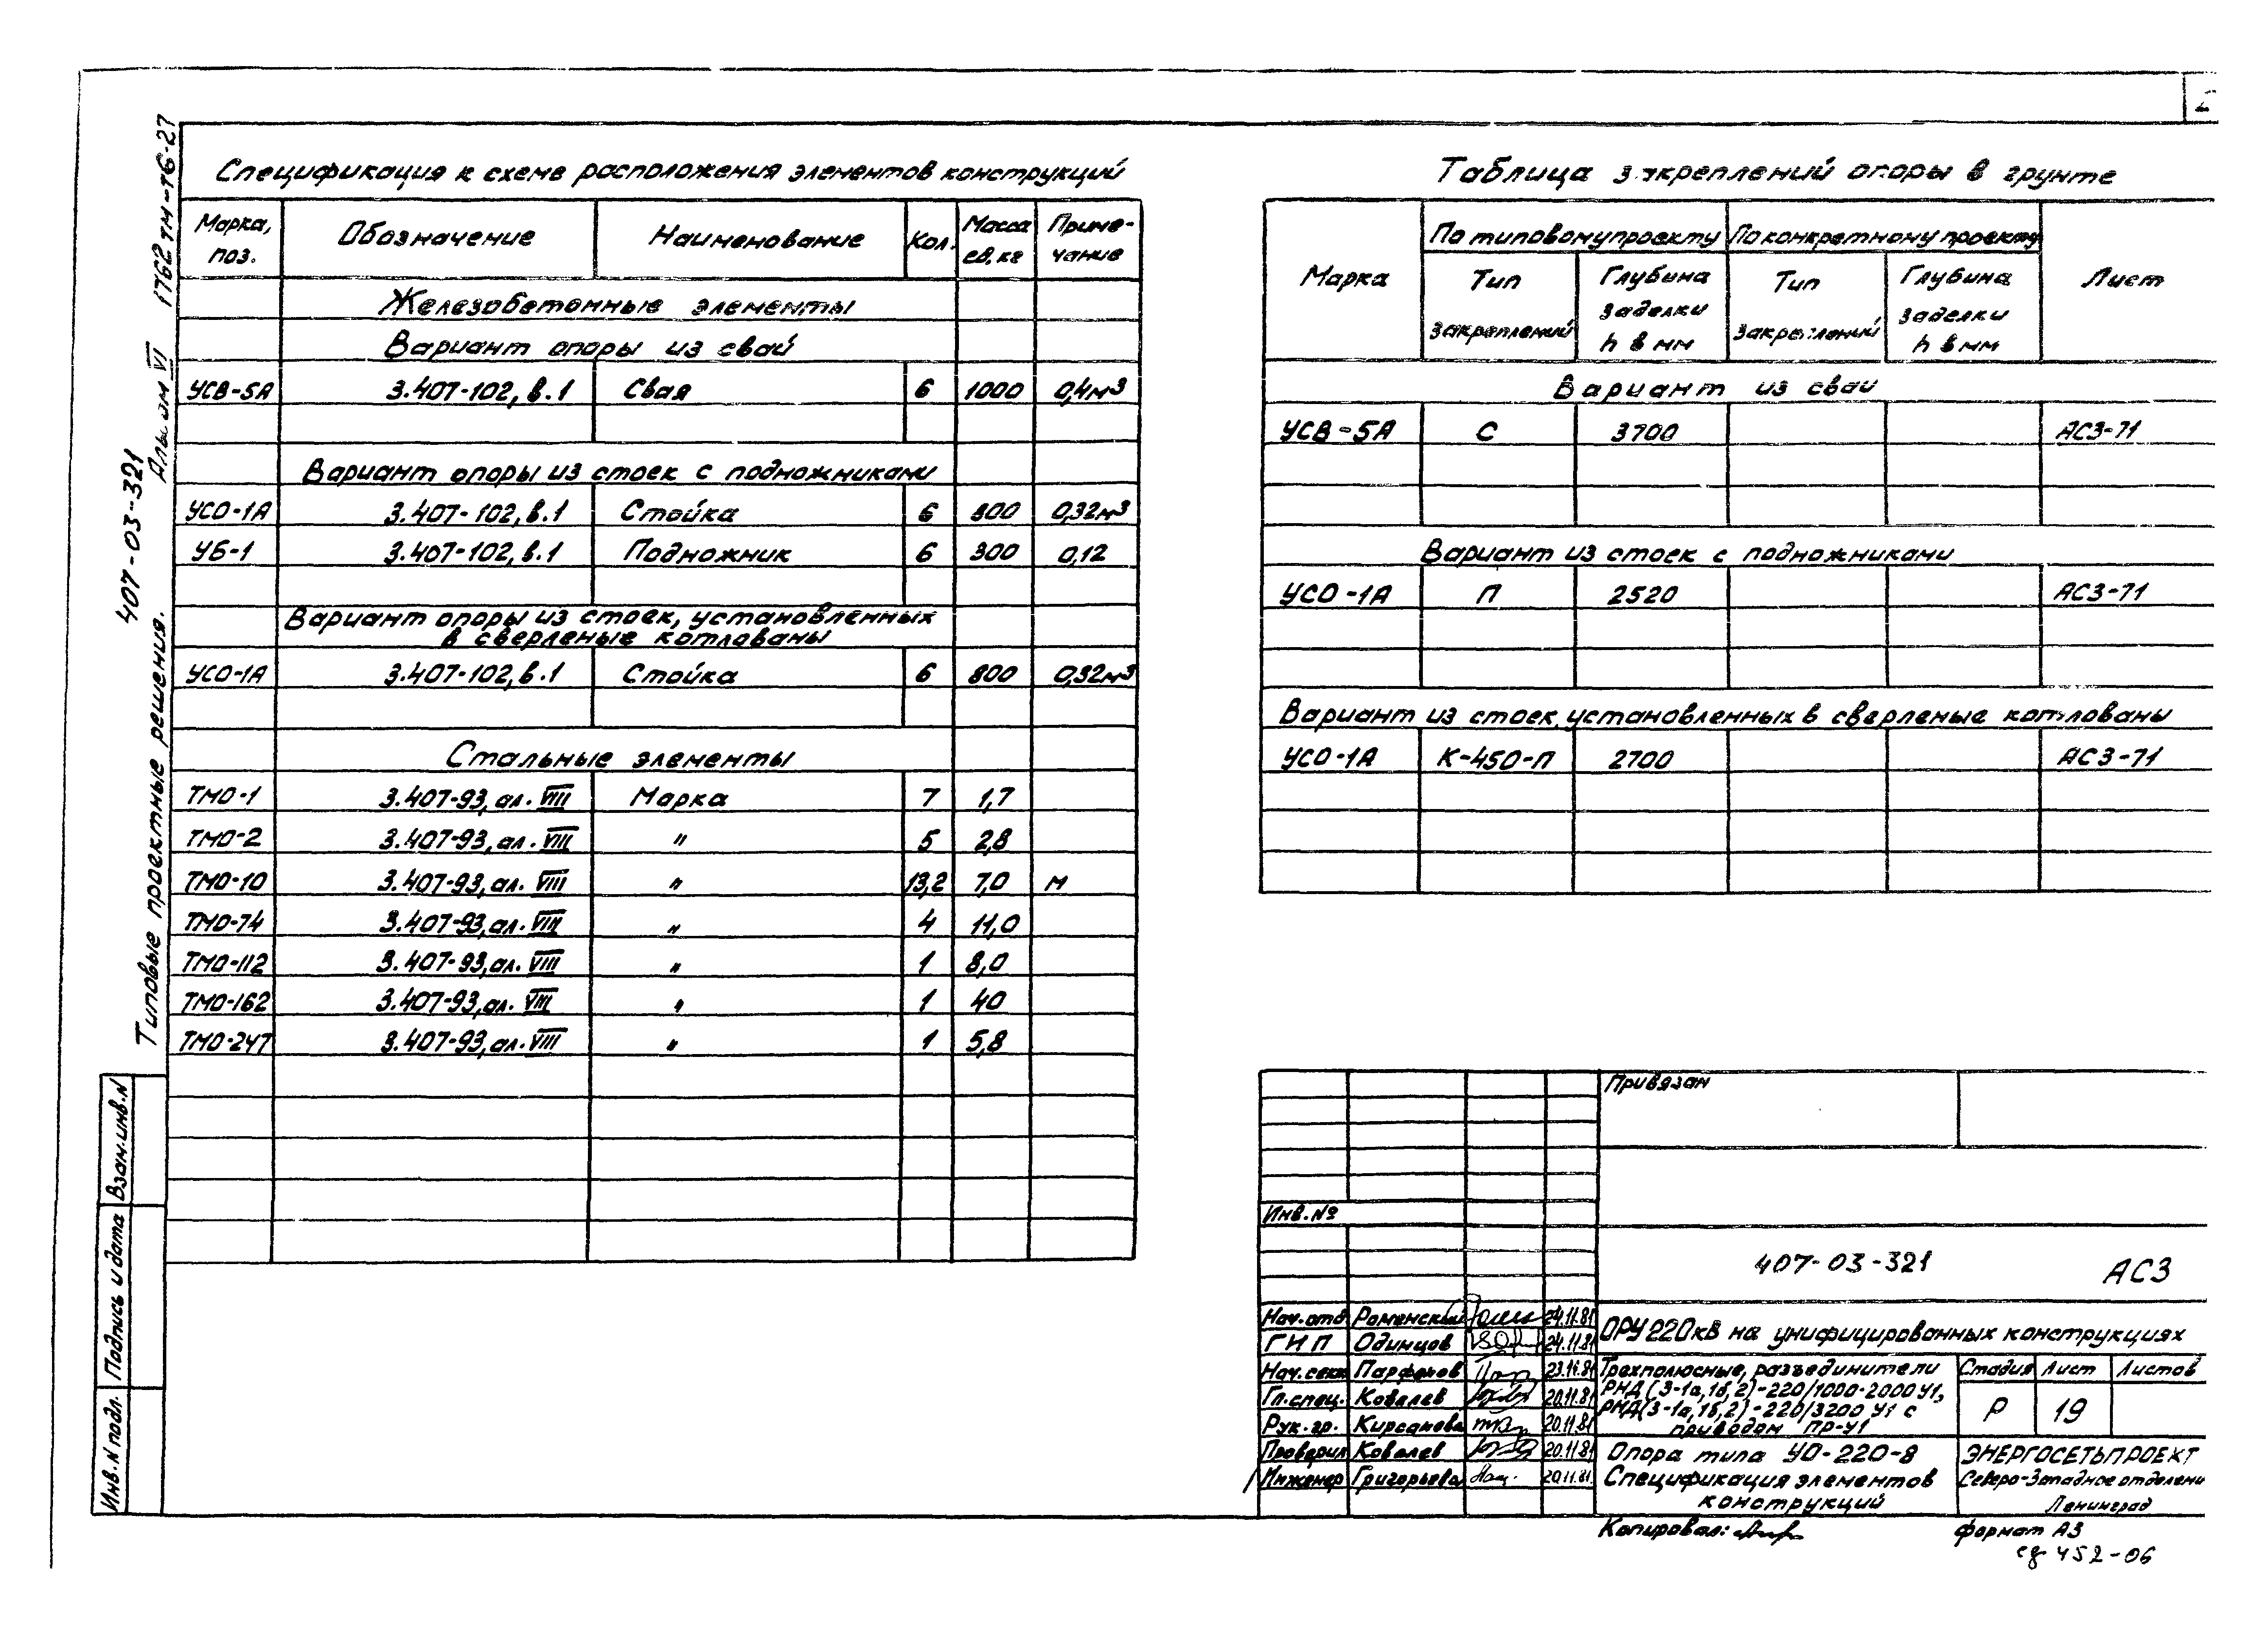 Типовые проектные решения. 407-03-321 Альбом VI 1762ТМ-Т6-27
Спецификация к схеме расположения элементов конструкций
Марка, поз. Обозначение Наименование Кол. Масса ед, кг Приме-чание
Железобетонные элементы
Вариант опоры из свай
УСВ-5А 3.407-102, в.1 Свая 6 1000 0,4м3
Вариант опоры из стоек с подножниками
УСО-1А 3.407-102, в.1 Стойка 6 800 0,32м3
УБ-1 3.407-102, в.1 Подножник 6 300 0,12
Вариант опоры из стоек, установленных
в сверленые котлованы
УСО-1А 3.407-102, в.1 Стойка 6 800 0,32м3
Стальные элементы
ТМО-1 3.407-93, ал. VIII Марка 7 1,7
ТМО-2 3.407-93, ал. VIII " 5 2,8
ТМО-10 3.407-93, ал. VIII " 13,2 7,0 м
ТМО-74 3.407-93, ал. VIII " 4 11,0
ТМО-112 3.407-93, ал. VIII " 1 8,0
ТМО-162 3.407-93, ал. VIII " 1 40
ТМО-247 3.407-93, ал. VIII " 1 5,8
Таблица закреплений опоры в грунте
Марка По типовому проекту По конкретному проекту Лист
Тип закреплений Глубина заделки h в мм Тип закреплений Глубина заделки h в мм
Вариант из свай
УСВ-5А С 3700 АС3-71
Вариант из стоек с подножниками
УСО-1А П 2520 АС3-71
Вариант из стоек, установленных в сверленые котлованы
УСО-1А К-450-П 2700 АС3-71
Взам.инв.N
Подпись и дата
Инв.N подл.
Привязан
Инв.№
407-03-321 АС3
Нач.отд Роменский 24.11.81
ГИП Одинцов 24.11.81
Нач.секц Парфенов 23.11.81
Гл.спец. Ковалев 20.11.81
Рук.гр. Кирсанова 20.11.81
Проверил Ковалев 20.11.81
Инженер Григорьева 20.11.81
ОРУ 220кВ на унифицированных конструкциях
Трехполюсные, разъединители
РНД(З-1а,1б,2)-220/1000-2000 У1,
РНД(З-1а,1б,2)-220/3200 У1 с
приводом ПР-У1
Стадия Лист Листов
Р 19
Опора типа УО-220-8
Спецификация элементов
конструкций
ЭНЕРГОСЕТЬПРОЕКТ
Северо-Западное отделени
Ленинград
Копировал:
формат А3
452-06